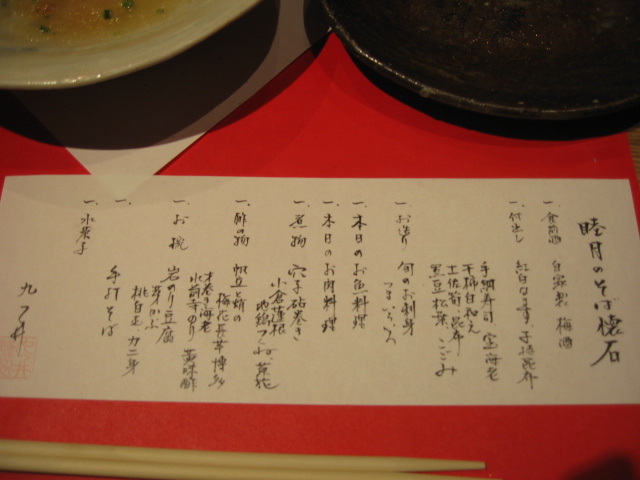 睦月のそば懐石
一、食前酒 自家製 梅酒
一、付出し 紅白なます、子持昆布
手綱寿司、宝海老
干柿白和え
土佐筍、昆布
黒豆松葉、こごみ
一、お造り 旬のお刺身
一、本日のお魚料理
一、本日のお肉料理
一、煮物 穴子砧巻き
小倉蓮根
地鶏つくね、菜花
一、酢の物 帆立、筍の
梅花長芋博多
木巻き海老
水前寺のり 黄味酢
一、お椀 岩のり豆腐
芽かぶ
カニ身
一、手打そば
一、水菓子
九つ井